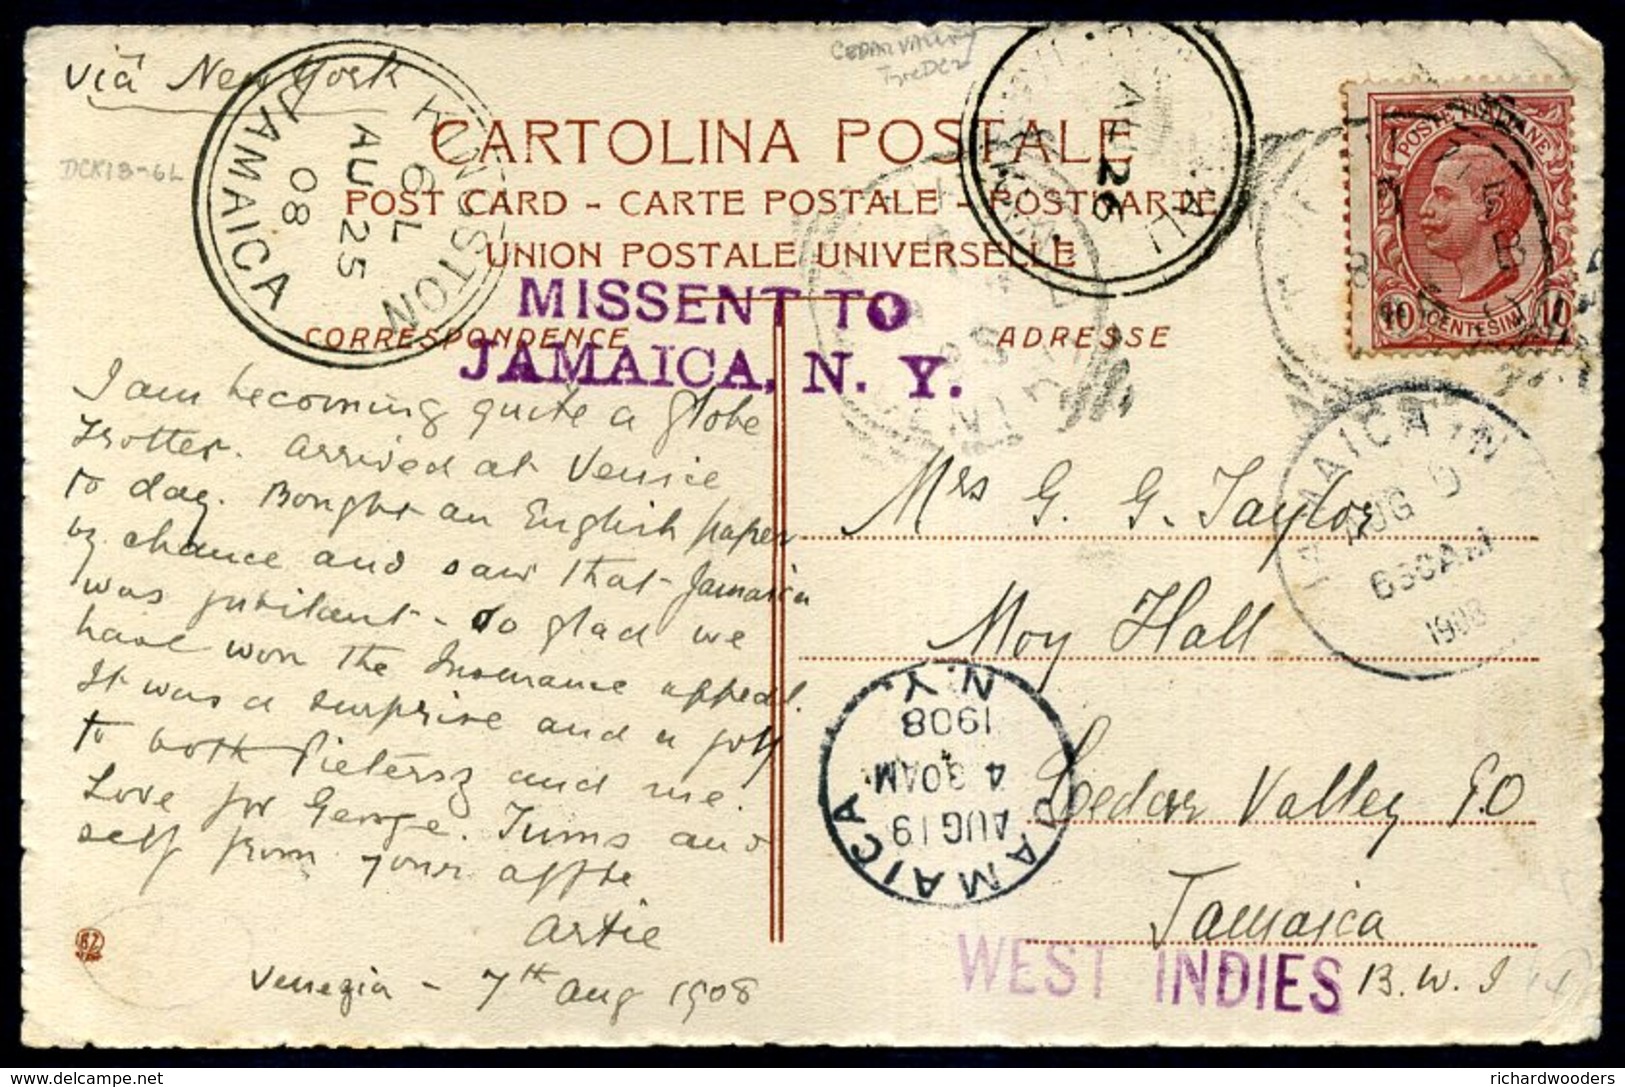 Viâ New York
CEDAR VALLEY
DCK18-6L
KINGSTON
6L
AU 25
08
JAMAICA
AU 26
CARTOLINA POSTALE
POST CARD - CARTE POSTALE - POSTKARTE
UNION POSTALE UNIVERSELLE
POSTE ITALIANE
10 CENTESIMI 10
MISSENT TO
JAMAICA, N. Y.
CORRESPONDENCE
ADRESSE
I am becoming quite a globe
trotter. Arrived at Venice
to day. Bought an English paper
by chance and saw that Jamaica
was jubilant - so glad we
have won the Insurance appeal.
It was a surprise and a joy
to both Pietersz and me.
Love for George. Tums and
self from your affte
Artie
Venezia - 7th Aug 1908
Mrs G. G. Taylor
Moy Hall
Cedar Valley P.O
Jamaica
B. W. I
WEST INDIES
JAMAICA, N
AUG
630AM
1908
JAMAICA
AUG 19
4 30AM
1908
N.Y.
87
richardwooders